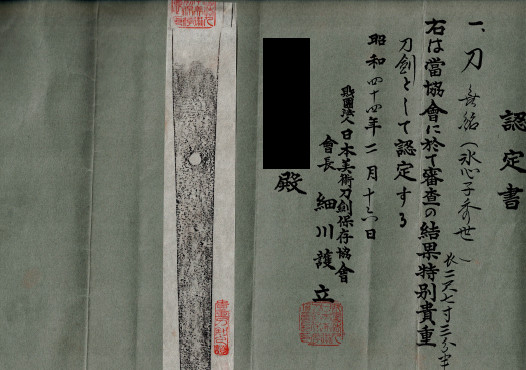 認定書
一、刀 無銘(水心子秀世) 長二尺七寸三分半
右は當協會に於て審査の結果特別貴重
刀劍として認定する
昭和四十四年二月十六日
財團法人日本美術刀劍保存協會
會長 細川護立
殿